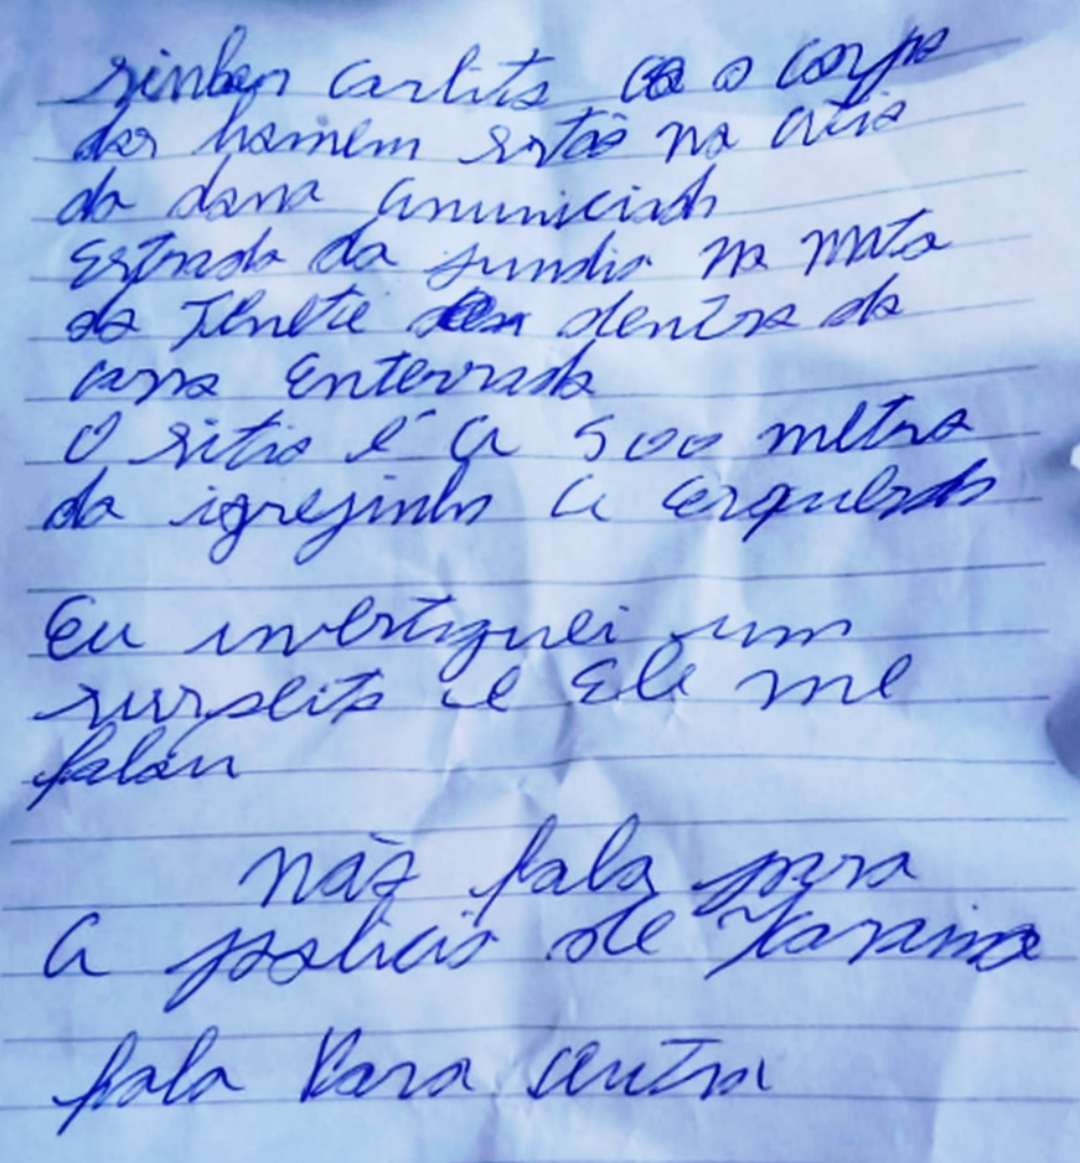 sinhor carlito o corpo
dos homem estão na citio
da dona anunciada
Estrada da jundia na mata
do Tenete dentro da
casa Enterrada
O sitio é a 500 metros
da igrejinha a esquerda
Eu investiguei um
surspeito e Ele me
falou
não fala para
a policia de
fala Para outra